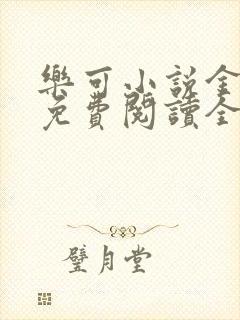 樂可小說全
免費閱讀全
璧月堂